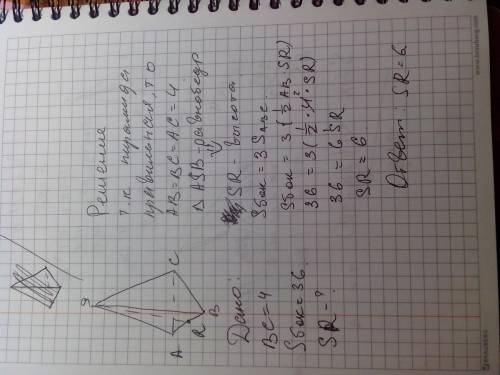 Решение
т.к пирамида
правильная, то
AB=BC=AC=4
Δ ASB - равнобедр
SR - высота
Sбок = 3 SABC.
Sбок = 3 (½ AB·SR)
36 = 3 (½ · 4 · SR)
36 = 6 SR
SR = 6
Ответ: SR = 6.
S
A
C
R
B
Дано:
BC = 4
Sбок = 36
SR - ?